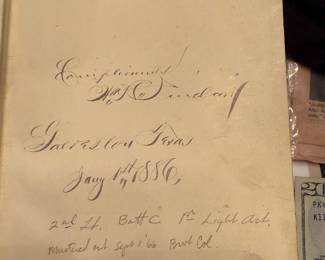 Compliments
Galveston Texas
Jany 1st 1886,
2nd Lt. Batt C 1st Light Art.
Mustered out Sept 1 '66 Bvt Col.
20
PK
K11